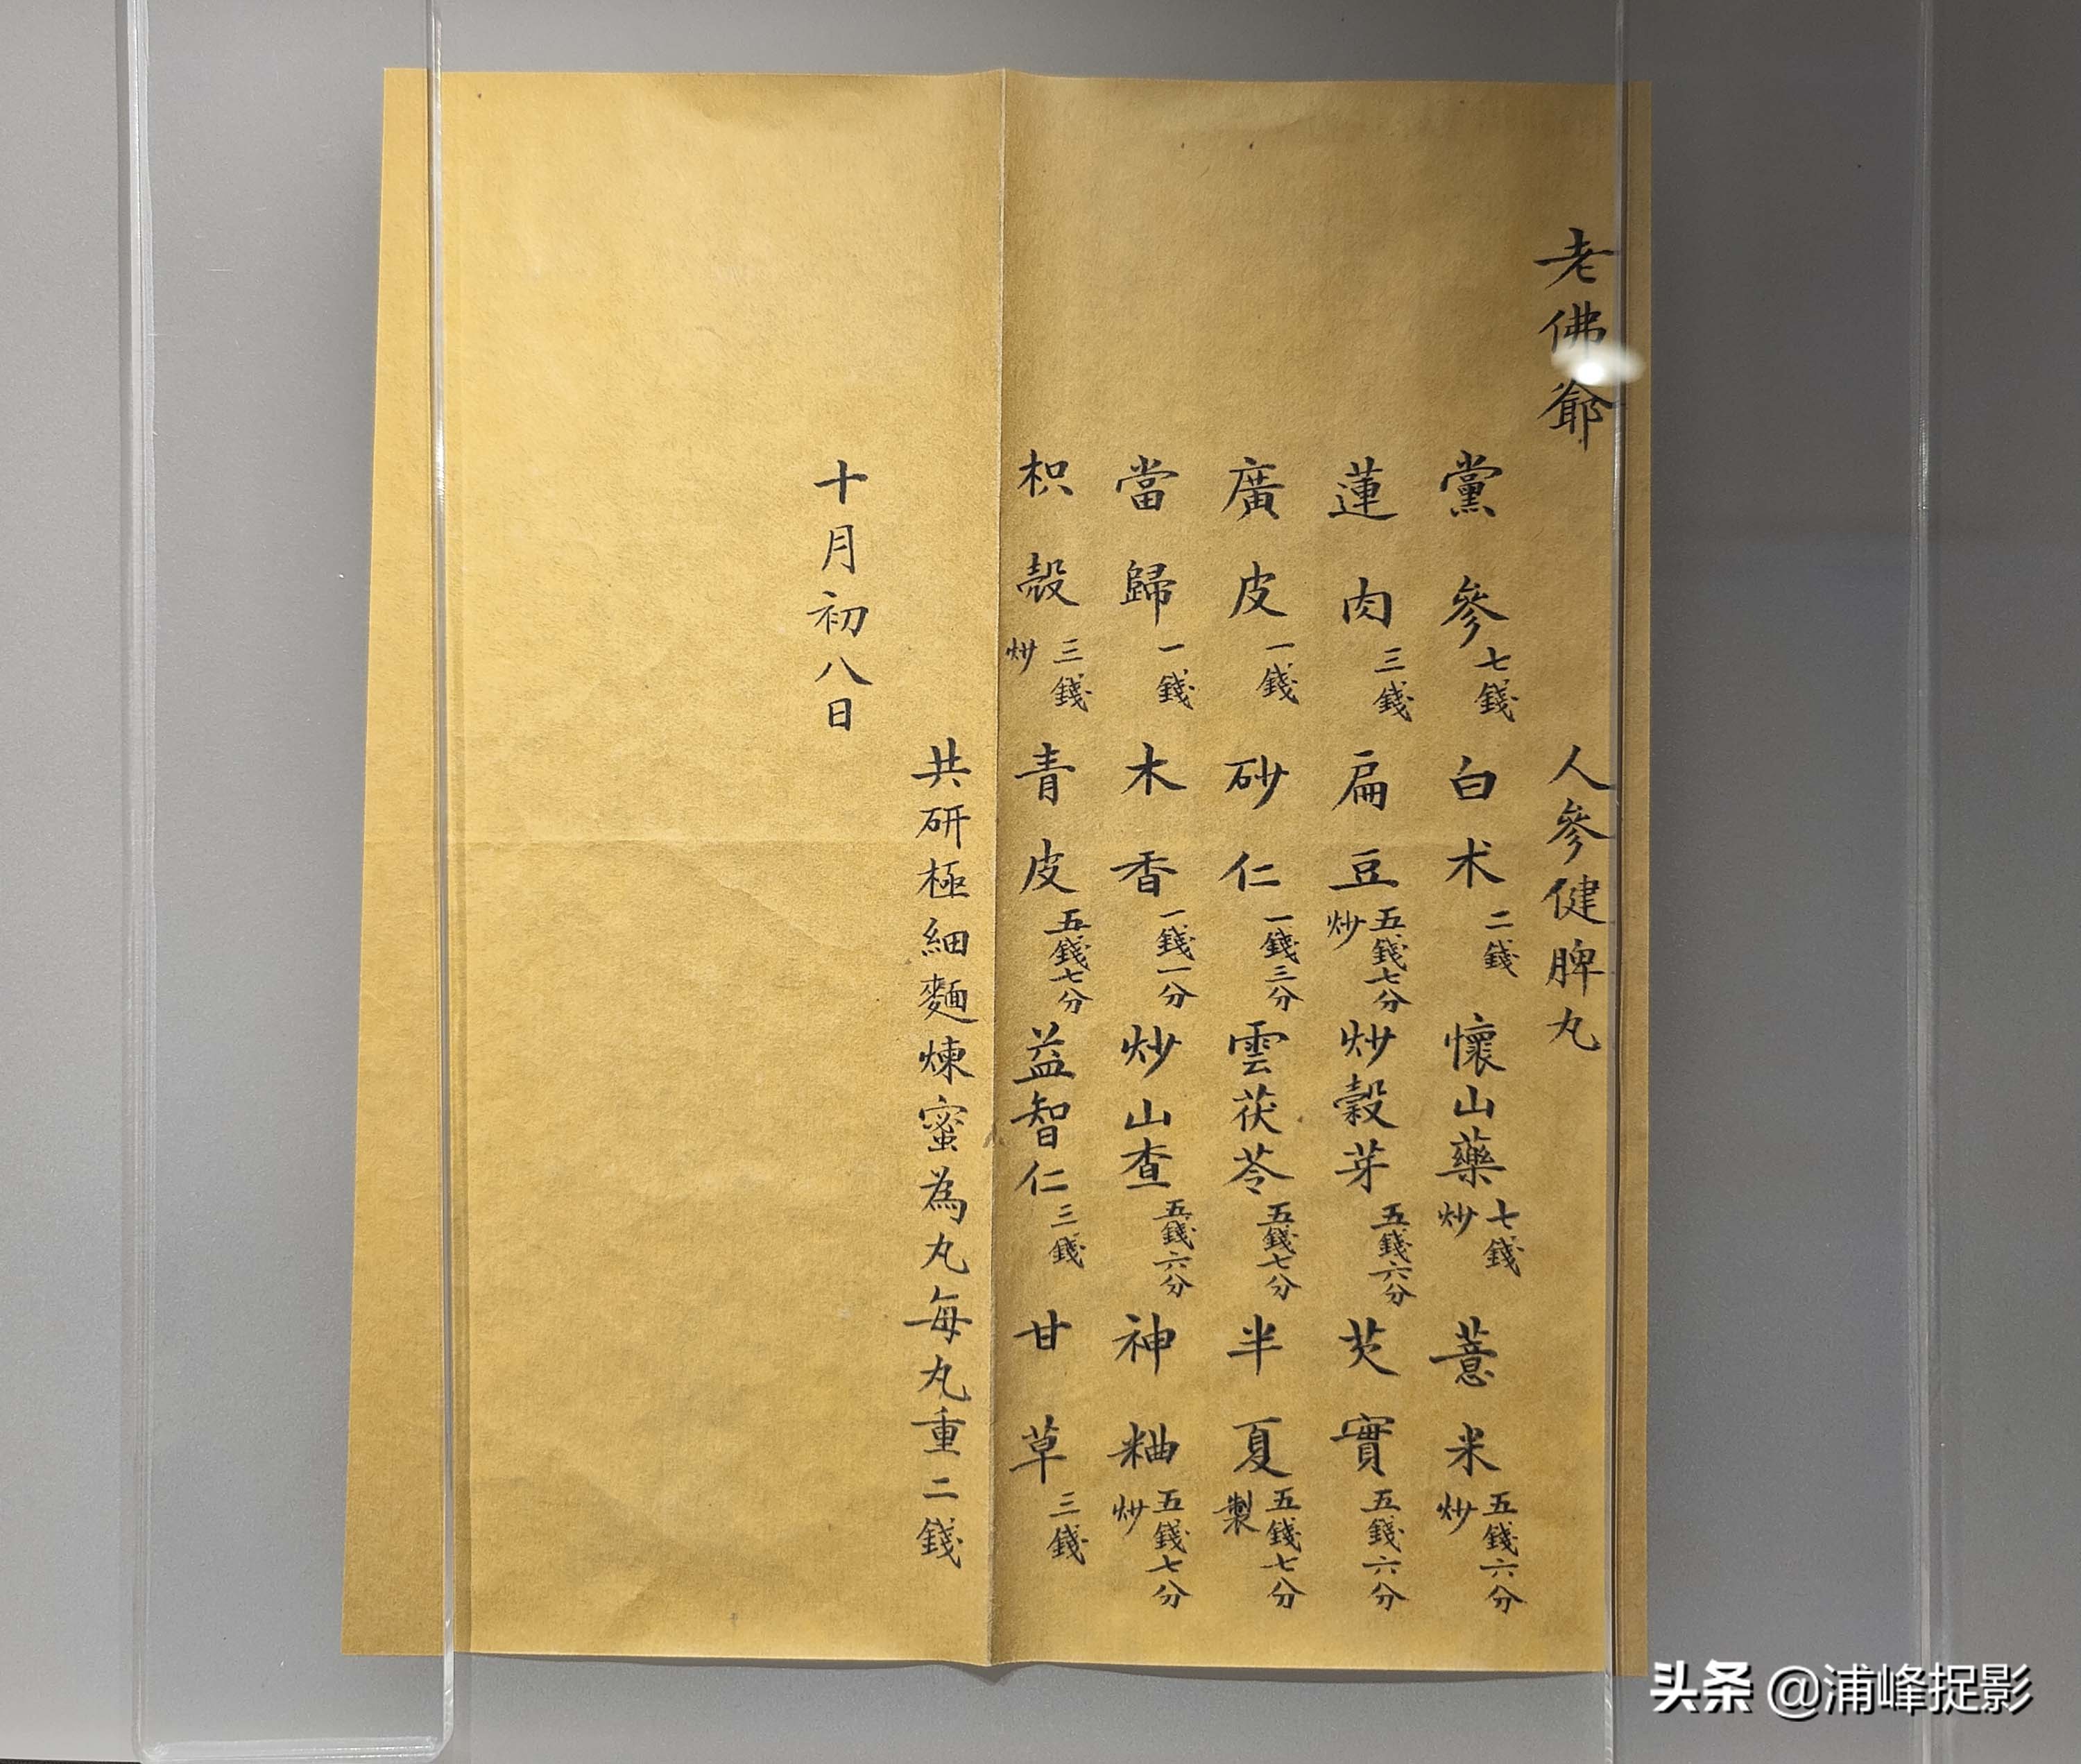 老佛爺 人參健脾丸
黨參七錢 白朮二錢 懷山藥七錢炒 薏米五錢六分炒
蓮肉三錢 扁豆五錢七分炒 炒穀芽五錢六分 芡實五錢六分
廣皮一錢 砂仁一錢三分 雲茯苓五錢七分 半夏五錢七分製
當歸一錢 木香一錢一分 炒山查五錢六分 神粬五錢七分炒
枳殼三錢炒 青皮五錢七分 益智仁三錢 甘草三錢
共研極細麵煉蜜為丸每丸重二錢
十月初八日
头条 @浦峰捉影